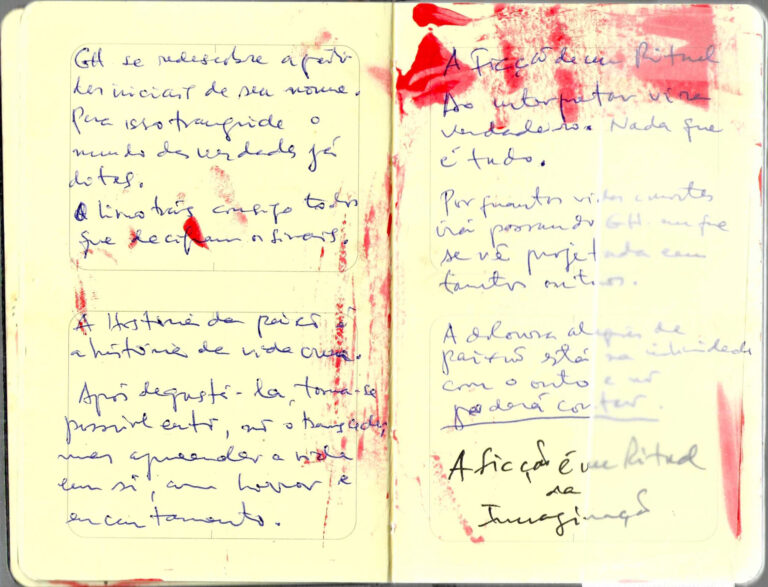 GH se redescobre a partir
das iniciais de seu nome.
Para isso transgride o
mundo das verdades já
ditas.
O livro traz consigo todos
que decifram os sinais.
A História da paixão é
a história da vida crua.
Após degustá-la, torna-se
possível então, não o transgredir,
mas apreender a vida
em si, com horror e
encantamento.
A Ficção de um Ritual
Ao interpretar vira
verdadeiro. Nada que
é tudo.
Por quantas vidas e mortes
irá passando GH em que
se vê projetada em
tantos outros.
A dolorosa alegria de
paixão está na intimidade
com o outro e não
poderá conter.
A ficção é um Ritual
da
Imaginação